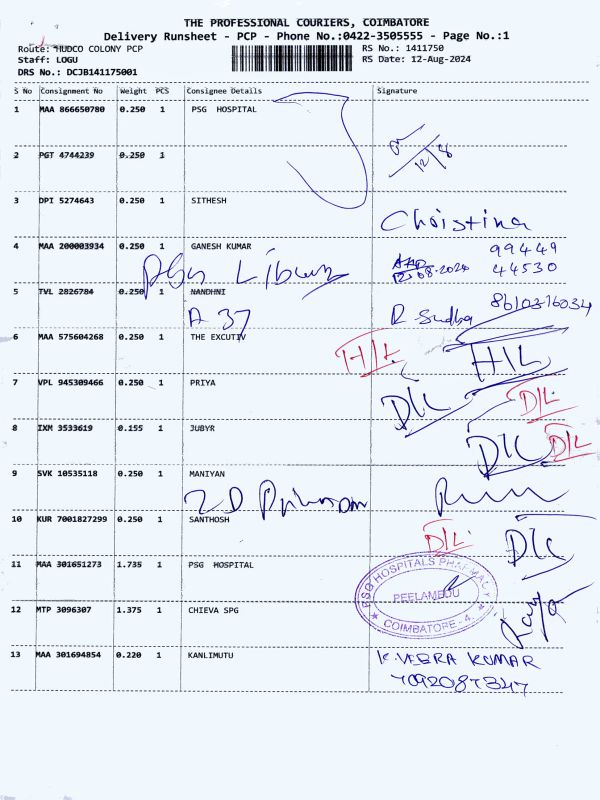 THE PROFESSIONAL COURIERS, COIMBATORE
Delivery Runsheet - PCP - Phone No.:0422-3505555 - Page No.:1
Route: HUDCO COLONY PCP RS No.: 1411750
Staff: LOGU RS Date: 12-Aug-2024
DRS No.: DCJB141175001
S No Consignment No Weight PCS Consignee Details Signature
1 MAA 866650780 0.250 1 PSG HOSPITAL
2 PGT 4744239 0.250 1
12/8
3 DPI 5274643 0.250 1 SITHESH
Christina
4 MAA 200003934 0.250 1 GANESH KUMAR 99449
44530
12.08.2024
5 TVL 2826784 0.250 1 NANDHNI 86103-16034
A 37 R. Sudha
6 MAA 575604268 0.250 1 THE EXCUTIV
H/L H/L
7 VPL 945309466 0.250 1 PRIYA
D/L D/L
8 IXM 3533619 0.155 1 JUBYR
D/L D/L
9 SVK 10535118 0.250 1 MANIYAN
2D
10 KUR 7001827299 0.250 1 SANTHOSH
D/L D/L
11 MAA 301651273 1.735 1 PSG HOSPITAL
PSG HOSPITALS PHARMACY
PEELAMEDU
COIMBATORE - 4.
12 MTP 3096307 1.375 1 CHIEVA SPG
13 MAA 301694854 0.220 1 KANLIMUTU
K.VEERA KUMAR
7092087347